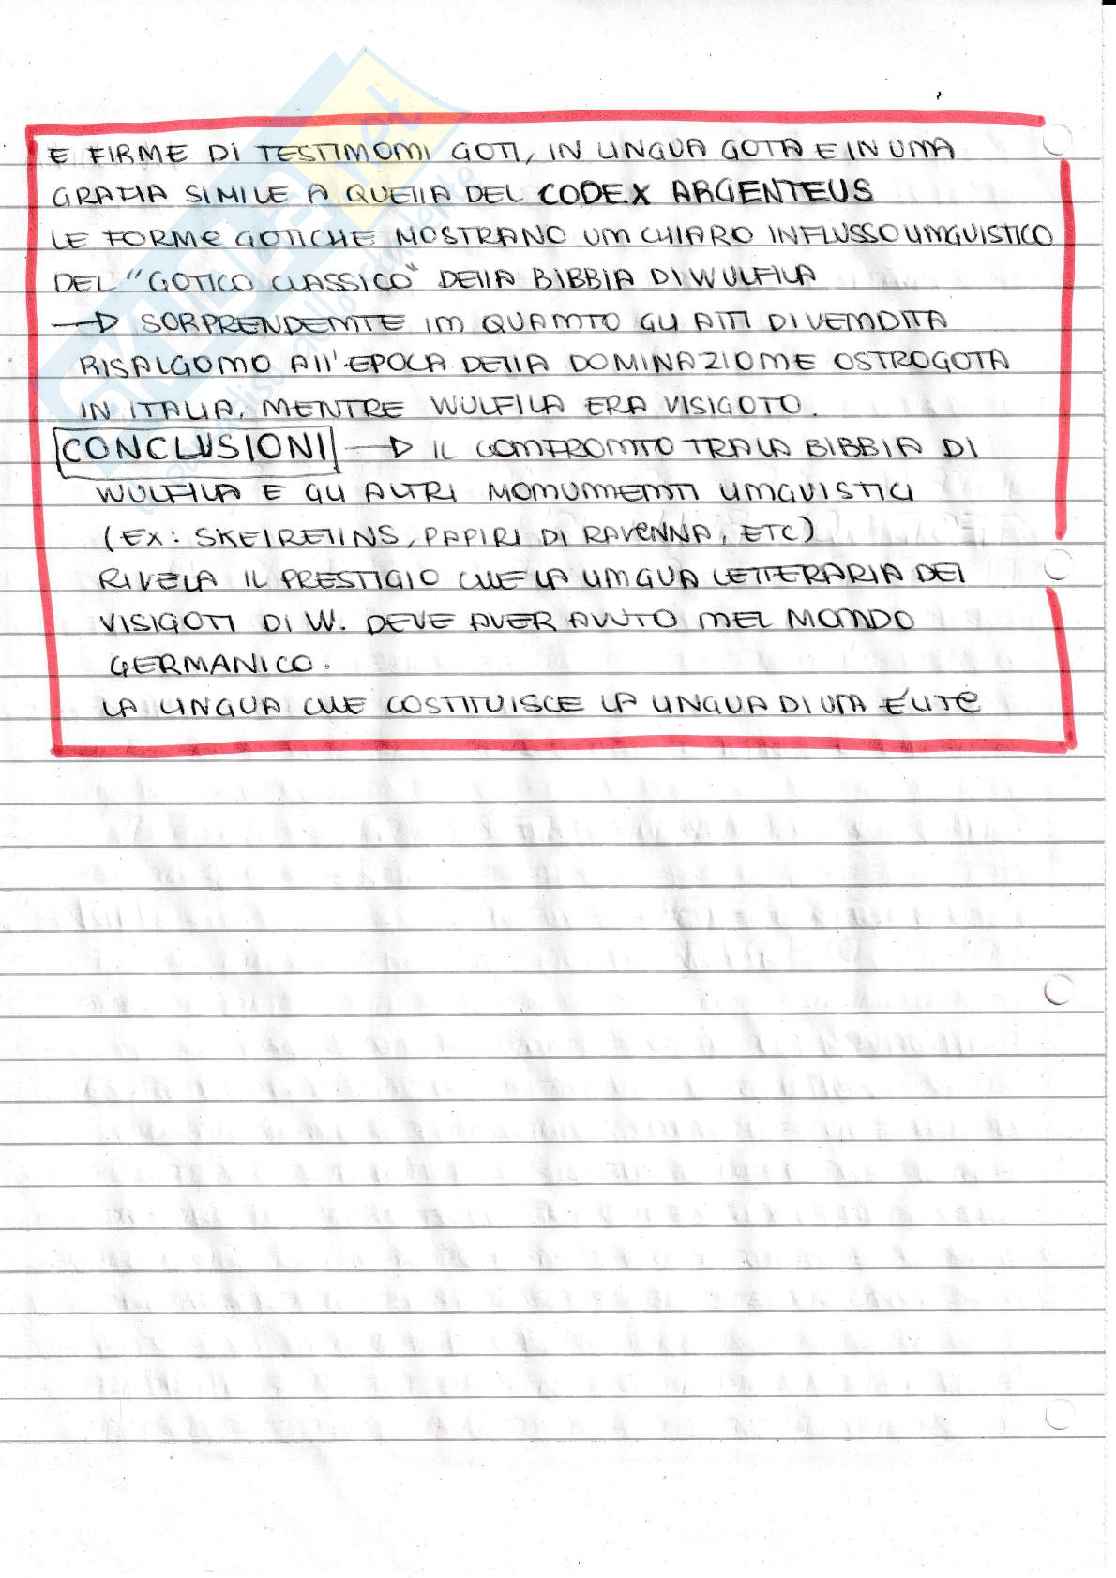 E FIRME DI TESTIMONI GOTI, IN LINGUA GOTA E IN UNA
GRAFIA SIMILE A QUELLA DEL CODEX ARGENTEUS
LE FORME GOTICHE MOSTRANO UN CHIARO INFLUSSO LINGUISTICO
DEL "GOTICO CLASSICO" DELLA BIBBIA DI WULFILA
→ SORPRENDENTE IN QUANTO GLI ATTI DI VENDITA
RISALGONO ALL'EPOCA DELLA DOMINAZIONE OSTROGOTA
IN ITALIA, MENTRE WULFILA ERA VISIGOTO.
CONCLUSIONI → IL CONFRONTO TRA LA BIBBIA DI
WULFILA E GLI ALTRI MONUMENTI LINGUISTICI
(EX: SKEIREIINS, PAPIRI DI RAVENNA, ETC)
RIVELA IL PRESTIGIO CHE LA LINGUA LETTERARIA DEI
VISIGOTI DI W. DEVE AVER AVUTO NEL MONDO
GERMANICO.
LA LINGUA CHE COSTITUISCE LA LINGUA DI UNA ÉLITE